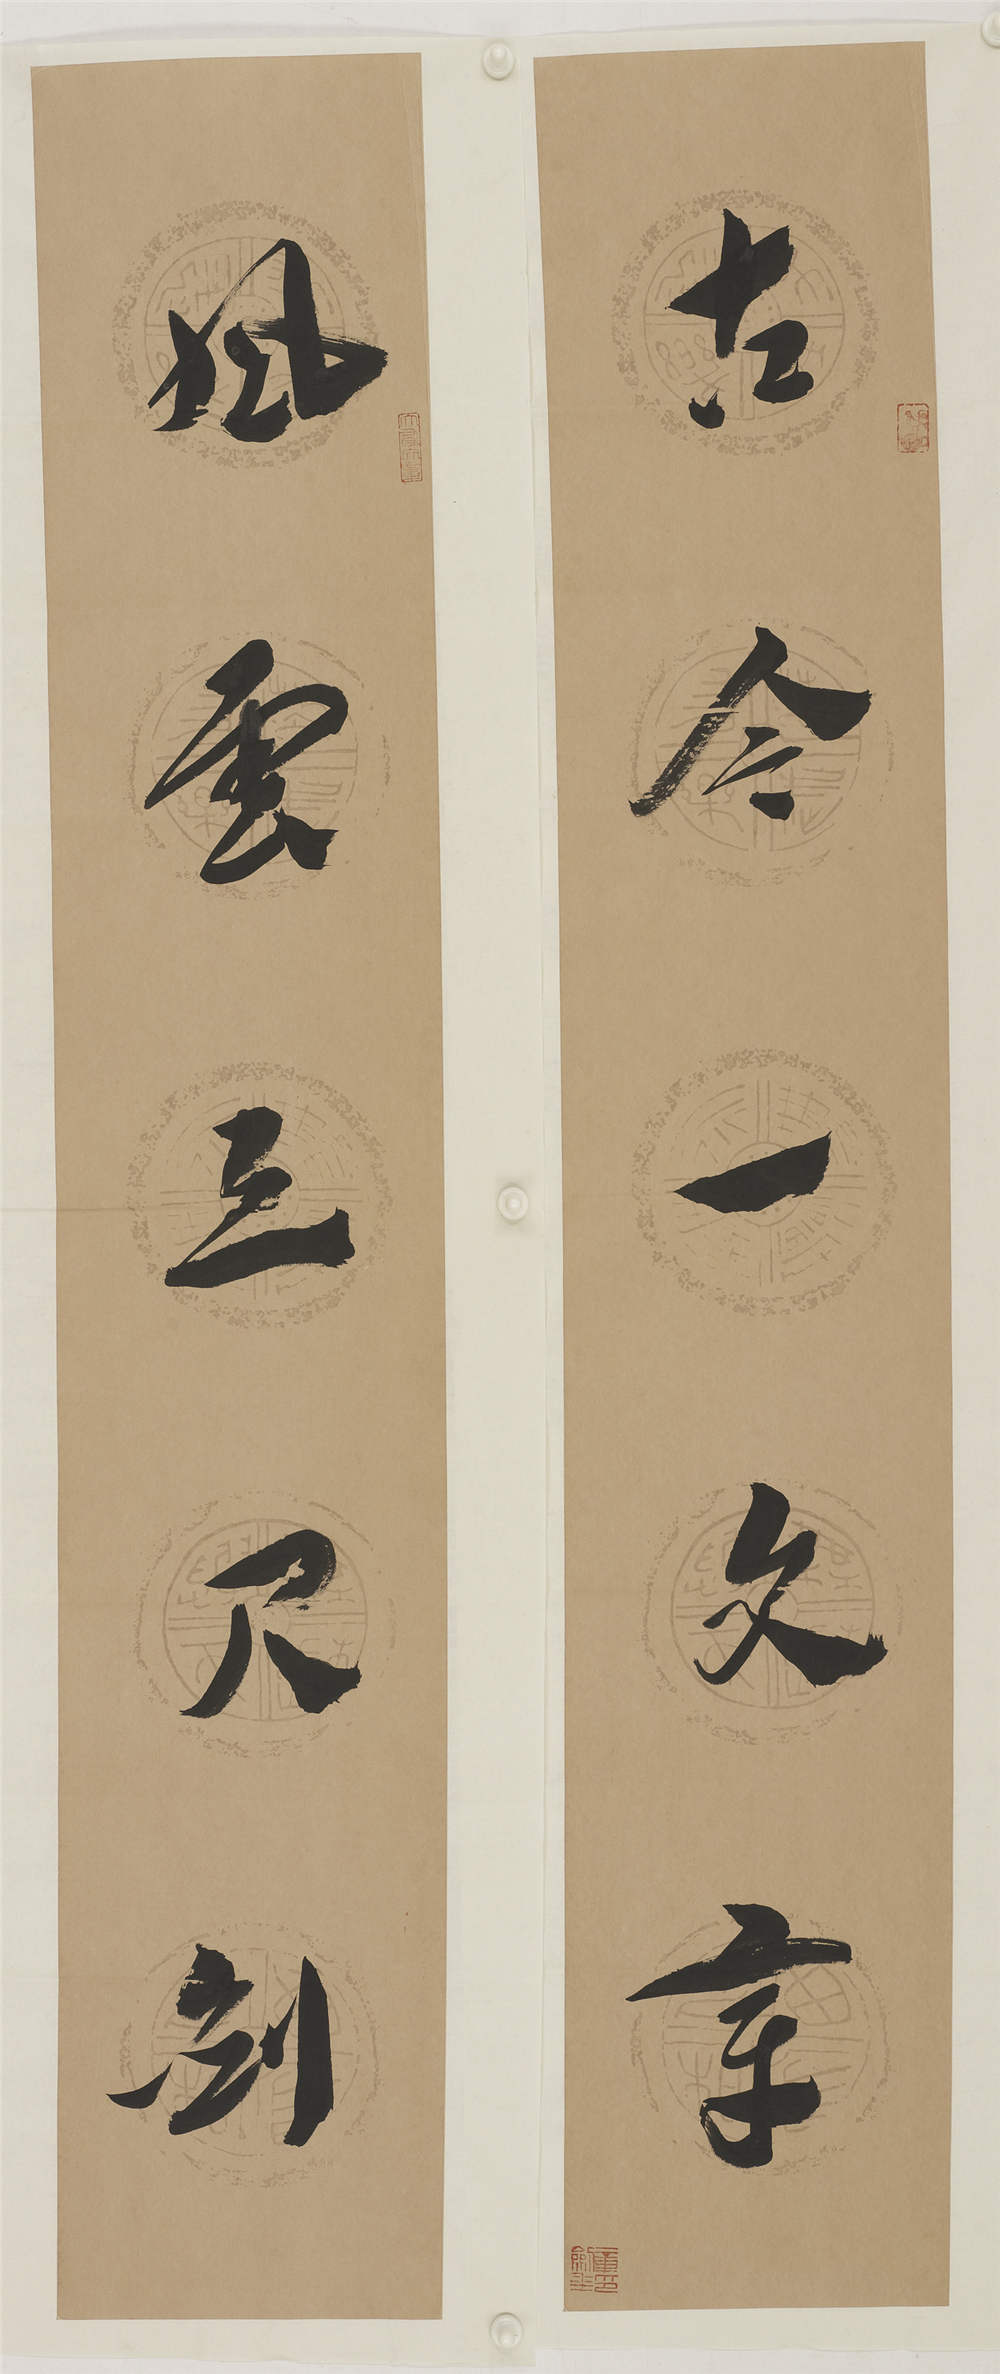 古今一文章
風雲三尺劍